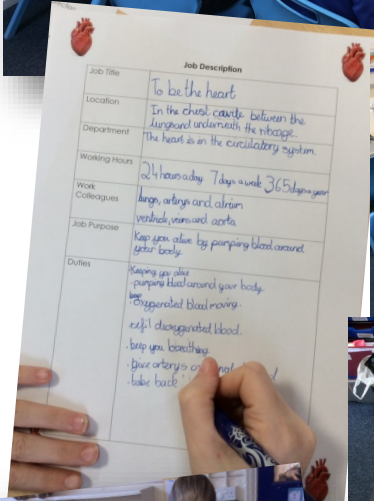 Job Description
Job Title
To be the heart
Location
In the chest cavite between the
lungs and underneath the ribcage.
Department
The heart is in the circulatory system.
Working Hours
24 hours a day 7 days a week 365 days a year
Work
Colleagues
lungs, arterys and atrium
ventricle, veins and aorta
Job Purpose
Keep you alive by pumping blood around
your body.
Duties
·Keeping you alive
·pumping blood around your body.
·oxygenated blood moving.
·refil deoxygenated blood.
·keep you breathing.
·give arterys
·take back